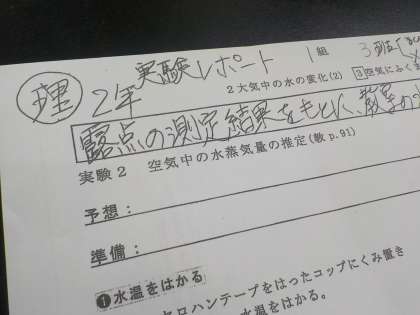 理 2年 実験レポート 1組 3班
2大気中の水の変化(2) 3空気にふく
露点の測定結果をもとに、教室の
実験2 空気中の水蒸気量の推定(教p.91)
予想:
準備:
❶水温をはかる
セロハンテープをはったコップにくみ置き
水温をはかる。